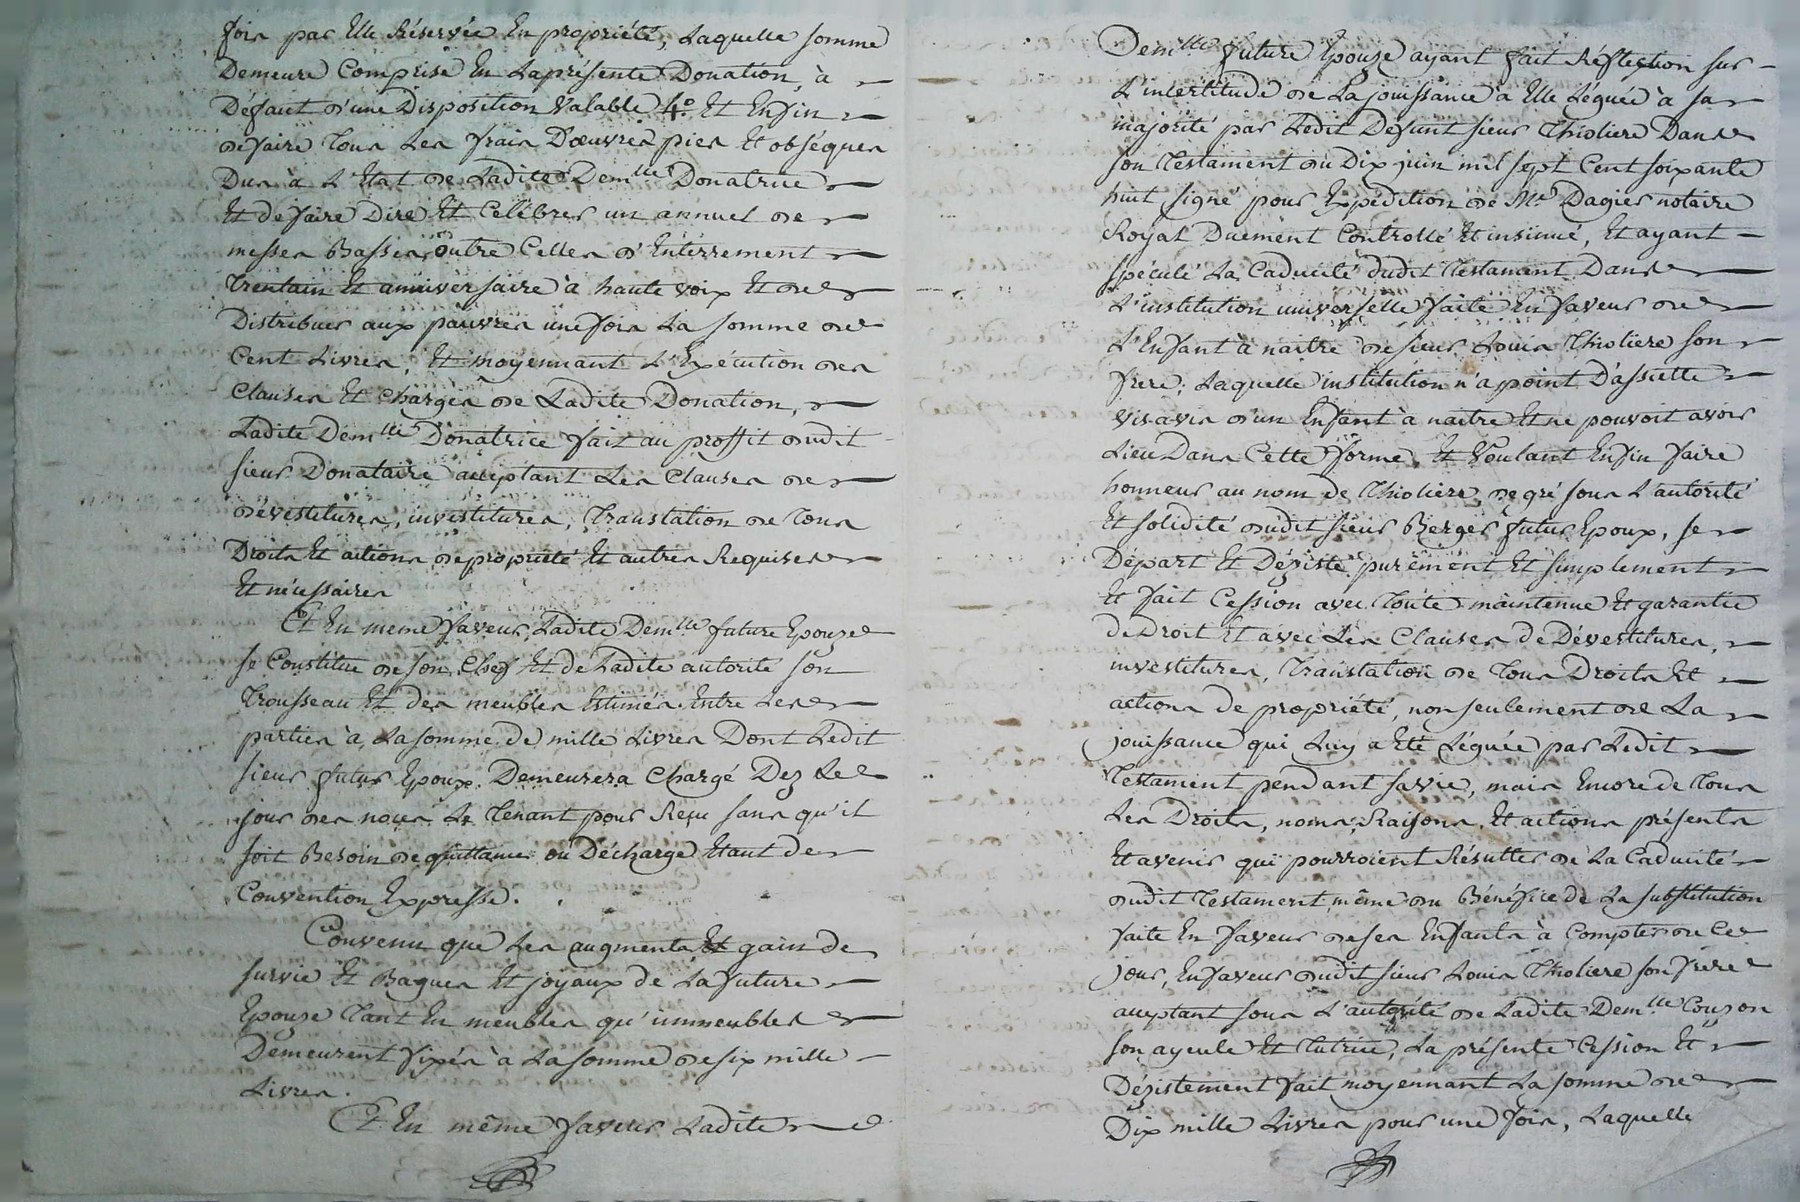 fois par Elle Réservée En propriété, Laquelle somme
Demeure Comprise En La présente Donation, à
Défaut d'une Disposition Valable 4.° Et Enfin
de faire Tous Les frais D'œuvres pies Et obséques
Dus à L'Etat de Ladite Dem.lle Donatrice
Et de faire Dire Et Celébrer un annuel de
messes Basses, outre Celles d'Enterrement
Trentain Et anniversaire à haute voix Et de
Distribuer aux pauvres une fois La somme de
Cent Livres, Et moyennant L'Exécution des
Clauses Et Charges de Ladite Donation,
Ladite Dem.lle Donatrice fait au proffit dudit
sieur Donataire acceptant Les Clauses de
dévestitures, investitures, Translation de Tous
Droits Et actions de propriété Et autres Requises
Et nécessaires
Et En meme faveur, Ladite Dem.lle future Epouze
se Constitue de son Chef Et de Ladite autorité son
Trousseau Et des meubles Estimés Entre Les
parties à La somme de mille Livres Dont Ledit
sieur futur Epoux Demeurera Chargé Dez Le
jour des noces Le Tenant pour Reçu sans qu'il
soit Besoin de quittance ou Décharge Etant de
Convention Expresse.
Convenu que Les augments Et gain de
survie Et Bagues Et joyaux de La future
Epouze Tant En meubles qu'immeubles
Demeurent fixés à La somme de six mille
Livres.
Et En même faveur Ladite
Dem.lle future Epouze ayant fait Réflection sur
L'intertitude de La jouissance à Elle Léguée à sa
majorité par Ledit Defunt sieur Thioliere Dans
son Testament du Dix juin mil sept Cent soixante
huit signé pour Expédition de Me Dagier notaire
Royal Duement Controllé Et insinué, Et ayant
spéculé La Caducité dudit Testament Dans
L'institution universelle faite En faveur de
L'Enfant à naitre de sieur Louis Thioliere son
frere; Laquelle institution n'a point D'assiette
vis avis d'un Enfant à naitre Et ne pouvoit avoir
Lieu Dans Cette forme, Et Voulant Enfin faire
honneur au nom de Thioliere, de gré sous L'autorité
Et solidité dudit sieur Berger futur Epoux, se
Départ Et Déziste purement Et simplement
Et fait Cession avec Toute maintenue Et garantie
de Droit Et avec Les Clauses de Dévestitures,
investitures, Translation de Tous Droits Et
actions de propriété, non seulement de La
jouissance qui Luy a Eté Léguée par Ledit
Testament pendant sa vie, mais Encore de Tous
Les Droits, noms, Raisons, Et actions présents
Et avenir qui pourroient Résulter de La Caducité
dudit Testament, même du Bénéfice de La substitution
faite En faveur de ses Enfants à Compter de Ce
jour, En faveur dudit sieur Louis Thioliere son frere
acceptant sous L'autorité de Ladite Dem.lle Couzon
son ayeule Et Tutrice, La présente Cession Et
Dézistement fait moyennant La somme de
Dix mille Livres pour une fois, Laquelle